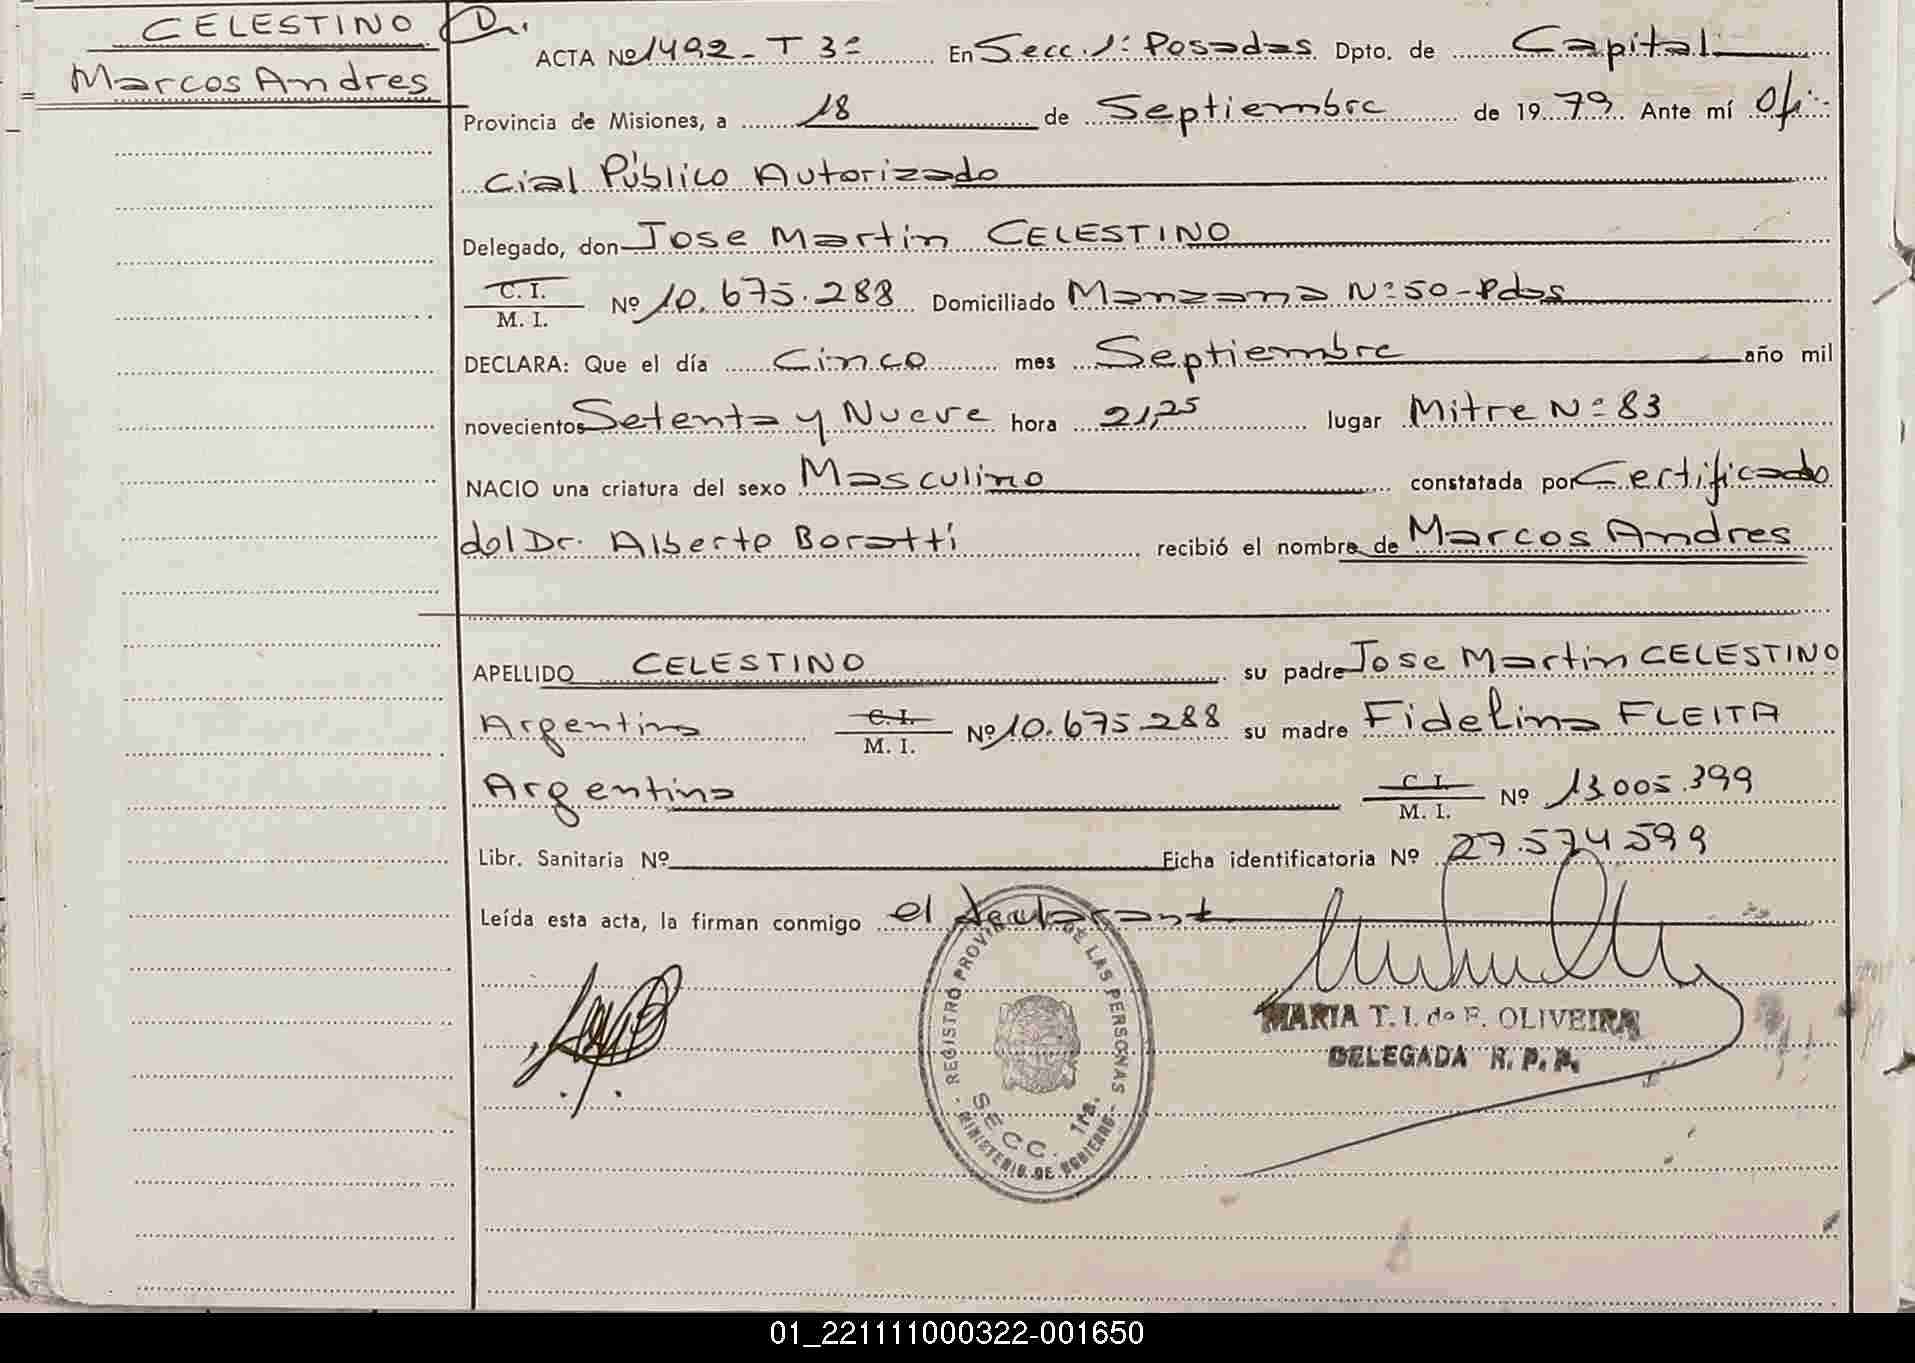 CELESTINO
Marcos Andres
ACTA Nº 1492 - T 3º En Secc. 1ª Posadas Dpto. de Capital
Provincia de Misiones, a 18 de Septiembre de 1979 Ante mí Ofi-
cial Público Autorizado
Delegado, don Jose Martin CELESTINO
C. I.
M. I. Nº 10.675.288 Domiciliado Manzana Nº 50 - Pdas
DECLARA: Que el día Cinco mes Septiembre año mil
novecientos Setenta y Nueve hora 21,25 lugar Mitre Nº 83
NACIO una criatura del sexo Masculino constatada por Certificado
del Dr. Alberto Boratti recibió el nombre de Marcos Andres
APELLIDO CELESTINO su padre Jose Martin CELESTINO
Argentino C. I. M. I. Nº 10.675.288 su madre Fidelina FLEITA
Argentina C. I. M. I. Nº 13.005.399
Libr. Sanitaria Nº Ficha identificatoria Nº 27.574.599
Leída esta acta, la firman conmigo el declarante
REGISTRO PROVINCIAL DE LAS PERSONAS
SECC. 1ra.
MINISTERIO DE GOBIERNO
MARIA T. I. de F. OLIVEIRA
DELEGADA R. P. P.
01_221111000322-001650